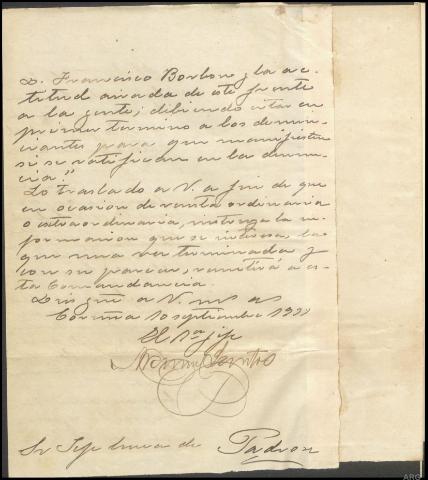 D. Francisco Borbon y la ac-
titud airada de este frente
a la gente; debiendo citar en
primer termino a los denun-
ciantes para que manifiesten
si se ratifican en la denun-
cia."
Lo traslado a V. a fin de que
en ocasion de revista ordinaria
o extraordinaria, instruya la in-
formacion que se interesa, la
que una vez terminada y
con su parecer, remitirá a es-
ta Comandancia.
Dios gue a V. ms as
Coruña 10 septiembre
El 1er jefe
Sr Jefe linea de Padron
ARG